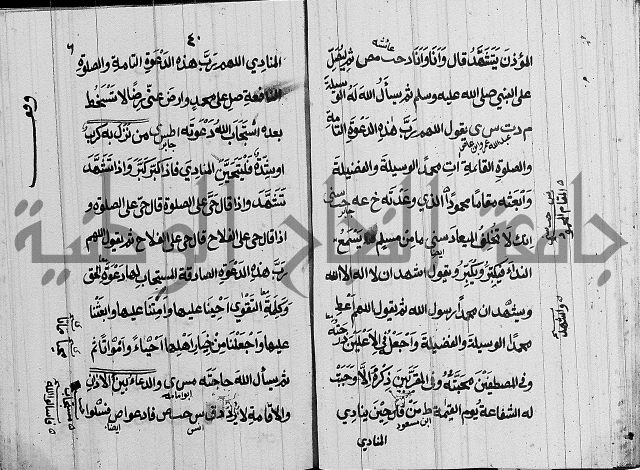 المؤذن يتشهد قال وانا وانا د حب مص ثم يصل
عائشة
على النبي صلى الله عليه وسلم ثم يسأل الله له الوسيلة
م د ت س ى يقول اللهم رب هذه الدعوة التامة
عبد الله بن عمرو بن العاص
والصلوة القائمة ات محمدا الوسيلة والفضيلة
وابعثه مقاما محمودا الذي وعدته خ عه
جابر
انك لا تخلف الميعاد سنى ما من مسلم يسمع
النداء فيكبر ويكبر ويقول اشهد ان لا اله الا الله
ويشهد ان محمدا رسول الله ثم يقول اللهم اعط
محمدا الوسيلة والفضيلة واجعله في الاعلين درجته
وفي المصطفين محبته وفي المقربين ذكره الا وجبت
له الشفاعة يوم القيمة ط من قال حين ينادي
ابن مسعود
المنادي
المقام المحمود
والشهد
٤٠
المنادي اللهم رب هذه الدعوة التامة والصلوة
النافعة صل على محمد وارض عني رضا لا تسخط
بعده استجاب الله دعوته ا ط ى من نزل به كرب
جابر
او شدة فليتحين المنادي فاذا كبر كبر واذا تشهد
تشهد واذا قال حي على الصلوة قال حي على الصلوة و
اذا قال حي على الفلاح قال حي على الفلاح ثم يقول اللهم
رب هذه الدعوة الصادقة المستجاب لها دعوة الحق
وكلمة التقوى احينا عليها وامتنا عليها وابعثنا
عليها واجعلنا من خيار اهلها احياء وامواتا
ثم يسأل الله حاجته مس ى والدعاء بين الاذان
ابو امامة
والاقامة لا يرد د ت س حب ص فادعوا ص فسلوا
انس
ايضا
محيانا
مماتنا